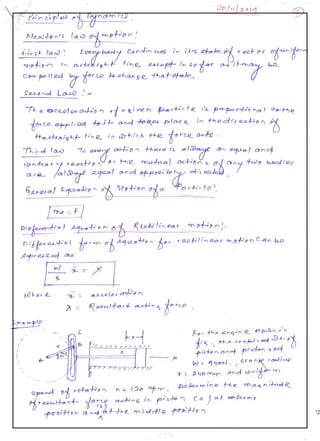 20/01/2021
Principles of Dynamics
Newton's law of motion:
First law: Everybody continues in its state of rest or of uniform
motion in a straight line except in so far as it may be
compelled by force to change that state.
Second Law :-
The acceleration of a given particle is proportional to the
force applied to it and takes place in the direction of
the straight line in which the force acts.
Third law To every action there is always an equal and
contrary reaction or the mutual actions of any two bodies
are always equal and oppositely directed.
General Equation of Motion of a Particle:
ma = f
Differential equation of Rectilinear motion:
Differential form of equation for rectilinear motion can be
expressed as
W/g ẍ = X
where ẍ = acceleration
X = Resultant acting force
Example
For the engine shown in
fig, the combined wt. of
piston and piston rod
W = 450N, crank radius
r = 250mm and uniform
speed of rotation n = 120 rpm. Determine the magnitude
of resultant force acting in piston (a) at extreme
position and at the middle position